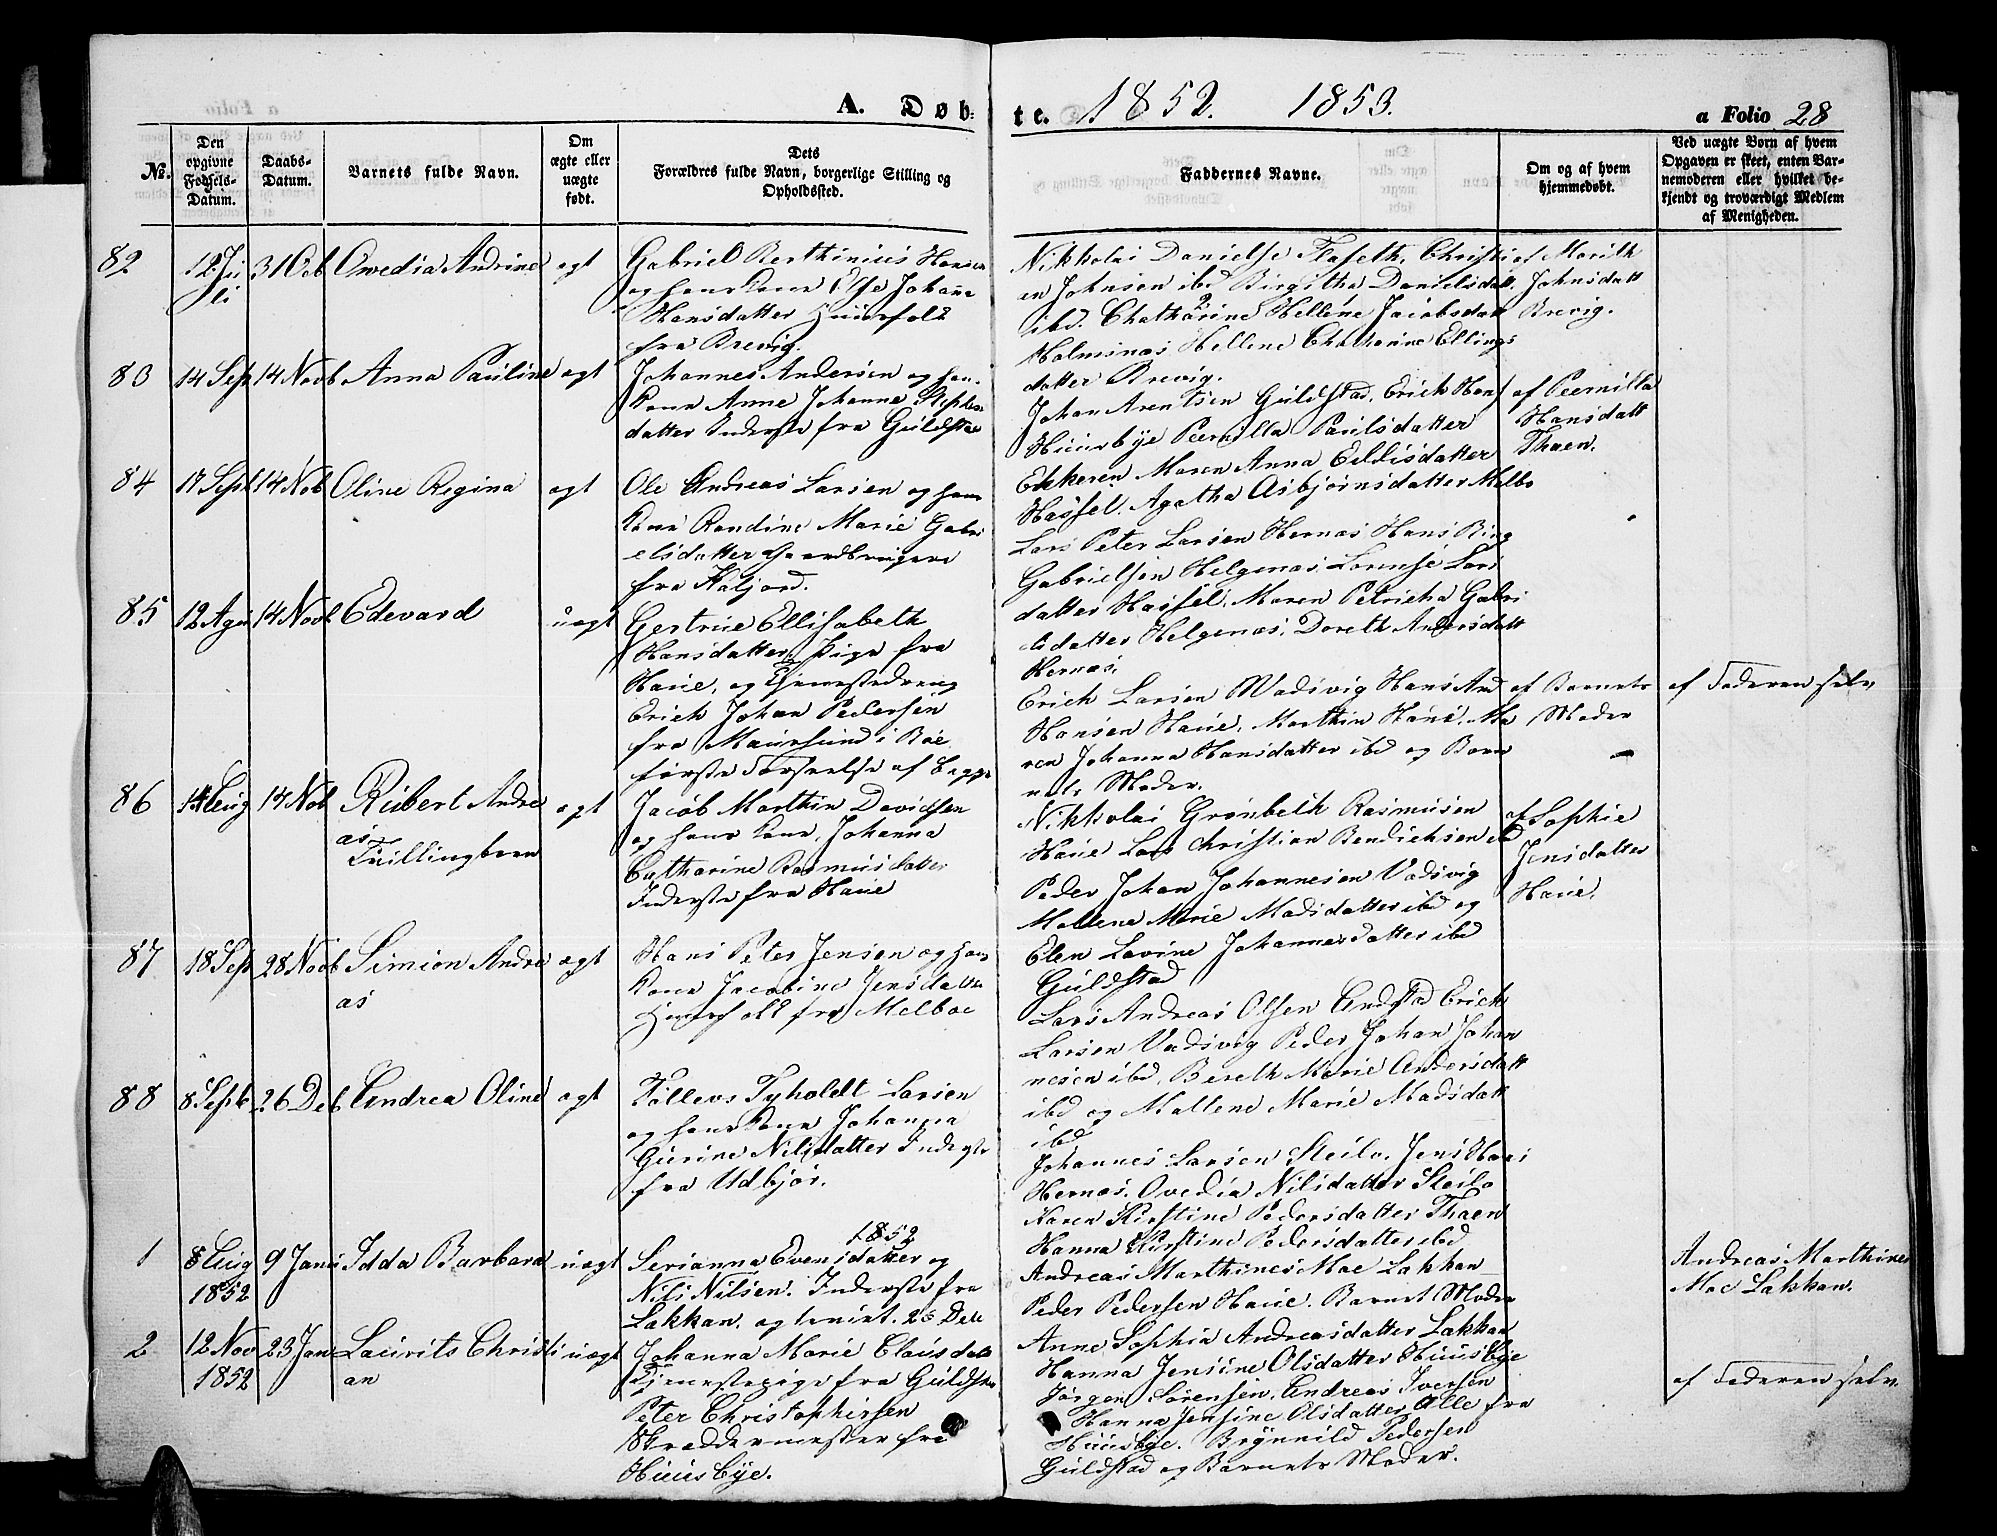 A. Døb-
te. 1852. 1853.
a Folio 28
№.
Den
opgivne
Fødsels-
Datum.
Daabs-
Datum.
Barnets fulde Navn.
Om
ægte eller
uægte
født.
Dets
Forældres fulde Navn, borgerlige Stilling og
Opholdssted.
Faddernes Navne.
Om og af hvem
hjemmedøbt.
Ved uægte Børn af hvem
Opgaven er skeet, enten Bar-
nemoderen eller hvilket be-
kjendt og troværdigt Medlem
af Menigheden.
82
12 Ju
li
31 Octb
Amedia Andrine
ægt
Gabriel Berthinius Hansen
og hans Kone Else Johanne
Hansdatter Huusfolk
fra Brevig.
Nikkolai Danielse Flaseth, Christi
an Johnsen ibd Birgitha Danielsdatt.
ibd. Chatharine Hellene Jacobsdatt
Holmsnæs Hellene Chatarine Ellings
datter Brevig.
af Marith
Johnsdatt
Brevig.
83
14 Sept
14 Novb
Anna Pauline
ægt
Johannes Andersen og hans
Kone Anne Johanna Steph
datter Inderste fra Guldstad
Johan Arentsen Guldstad, Erich Hans
Huusbye Pernilla Paulsdatter
Ekkeren Maren Anna Eddisdatter
Hassel, Agatha Asbjørnsdatter Melbo
af Pernilla
Hansdatt
Thaen.
84
17 Sept
14 Nob
Oline Regina
ægt
Ole Andreas Larsen og hans
Kone Randine Marie Gabri
elsdatter Gaardbrugere
fra Kaljord.
Lars Peter Larsen Hernæs Hans Ring
Gabrielsen Helgenæs Lorense Lars
datter Hassel. Maren Petricha Gabri
elsdatter Helgenæs, Doreth Andersdatt
Hernæs.
85
12 Agu
14 Novb
Edevard
uægt
Gertrue Ellisabeth
Hansdatter, Pige fra
Haue, og Tjenestedreng
Erich Johan Pedersen
fra Maursund i Bøe
første Forseelse af begge
Erich Larsen Wadsvig Hans And
Hansen Haue, Marthin Haue, Ma
ren Johanna Hansdatter ibd og Barn
nets Moder.
af Barnets
Moder
af Faderen selv
86
14 Aug
14 Nob
Rubert Andre
as
Tvillingbarn
ægt
Jacob Marthin Davidsen
og hans Kone, Johanna
Catharine Rasmusdatter
Inderste fra Haue
Nikkolai Grønbeth Rasmusen
Haue Lars Christian Bendichsen ibd
Peder Johan Johannesen Vadsvig
Mallene Marie Madsdatter ibd og
Elen Lavine Johannesdatter ibd
Guldstad
af Sophie
Jensdatter
Haue.
87
18 Sept
28 Novb
Simion Andre
as
ægt
Hans Peter Jensen og hans
Kone Jacobine Jensdatter
Huusfolk fra Melboe
Lars Andreas Olsen Andstad Erich
Larsen Vadsvig Peder Johan Johan
nesen ibd, Bereth Marie Andersdatt
ibd og Mallene Marie Madsdatt
ibd
88
8 Septb
26 Deb
Andrea Oline
ægt
Tollevs Tyholdt Larsen
og hans Kone Johanna
Gurine Nilsdatter Inderste
fra Udbjør.
Johannes Larsen Steilo. Jens Hans
Hernæs. Ovedia Nilsdatter Steilo
Karen Kirstine Pedersdatter Thaen
Hanna Kirstine Pedersdatter ibd
1852
1
8 Aug
1852
9 Janu
Idda Barbara
uægt
Serianna Evensdatter og
Nils Nilsen. Inderste fra
Lakkan, 25 Deb
Andreas Marthines Moe Lakkan
Peder Pedersen Haue. Barnet Moder
Anne Sophia Andreasdatter Lakkan
Hanna Jensine Olsdatter Huusbye
Andreas Marthines
Moe Lakkan.
2
12 Nov
1852
23 Janu
Laurits Christi
an
uægt
Johanna Marie Clausdatt
Tjenestepige fra Guldstad
Peter Christophersen
Skreddermester fra
Huusbye.
Jørgen Sørensen, Andreas Iversen
Hanna Jensine Olsdatter Alle fra
Huusbye. Brynnild Pedersen
Guldstad og Barnets Moder.
af Faderen selv.